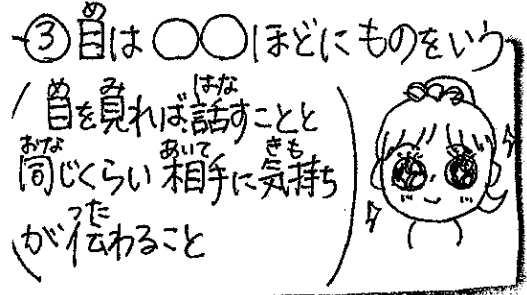 ③目は○○ほどにものをいう
(目を見れば、話すことと
同じくらい相手に気持ち
が伝わること)